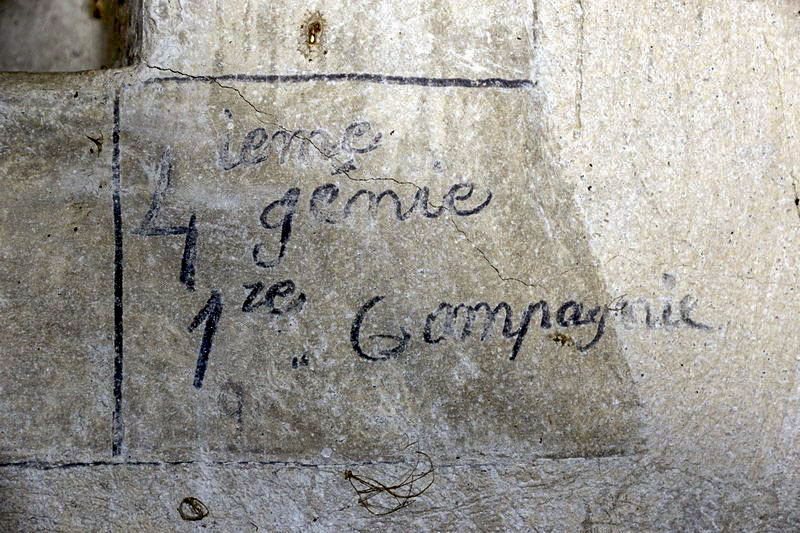 4ieme génie
1re Compagnie